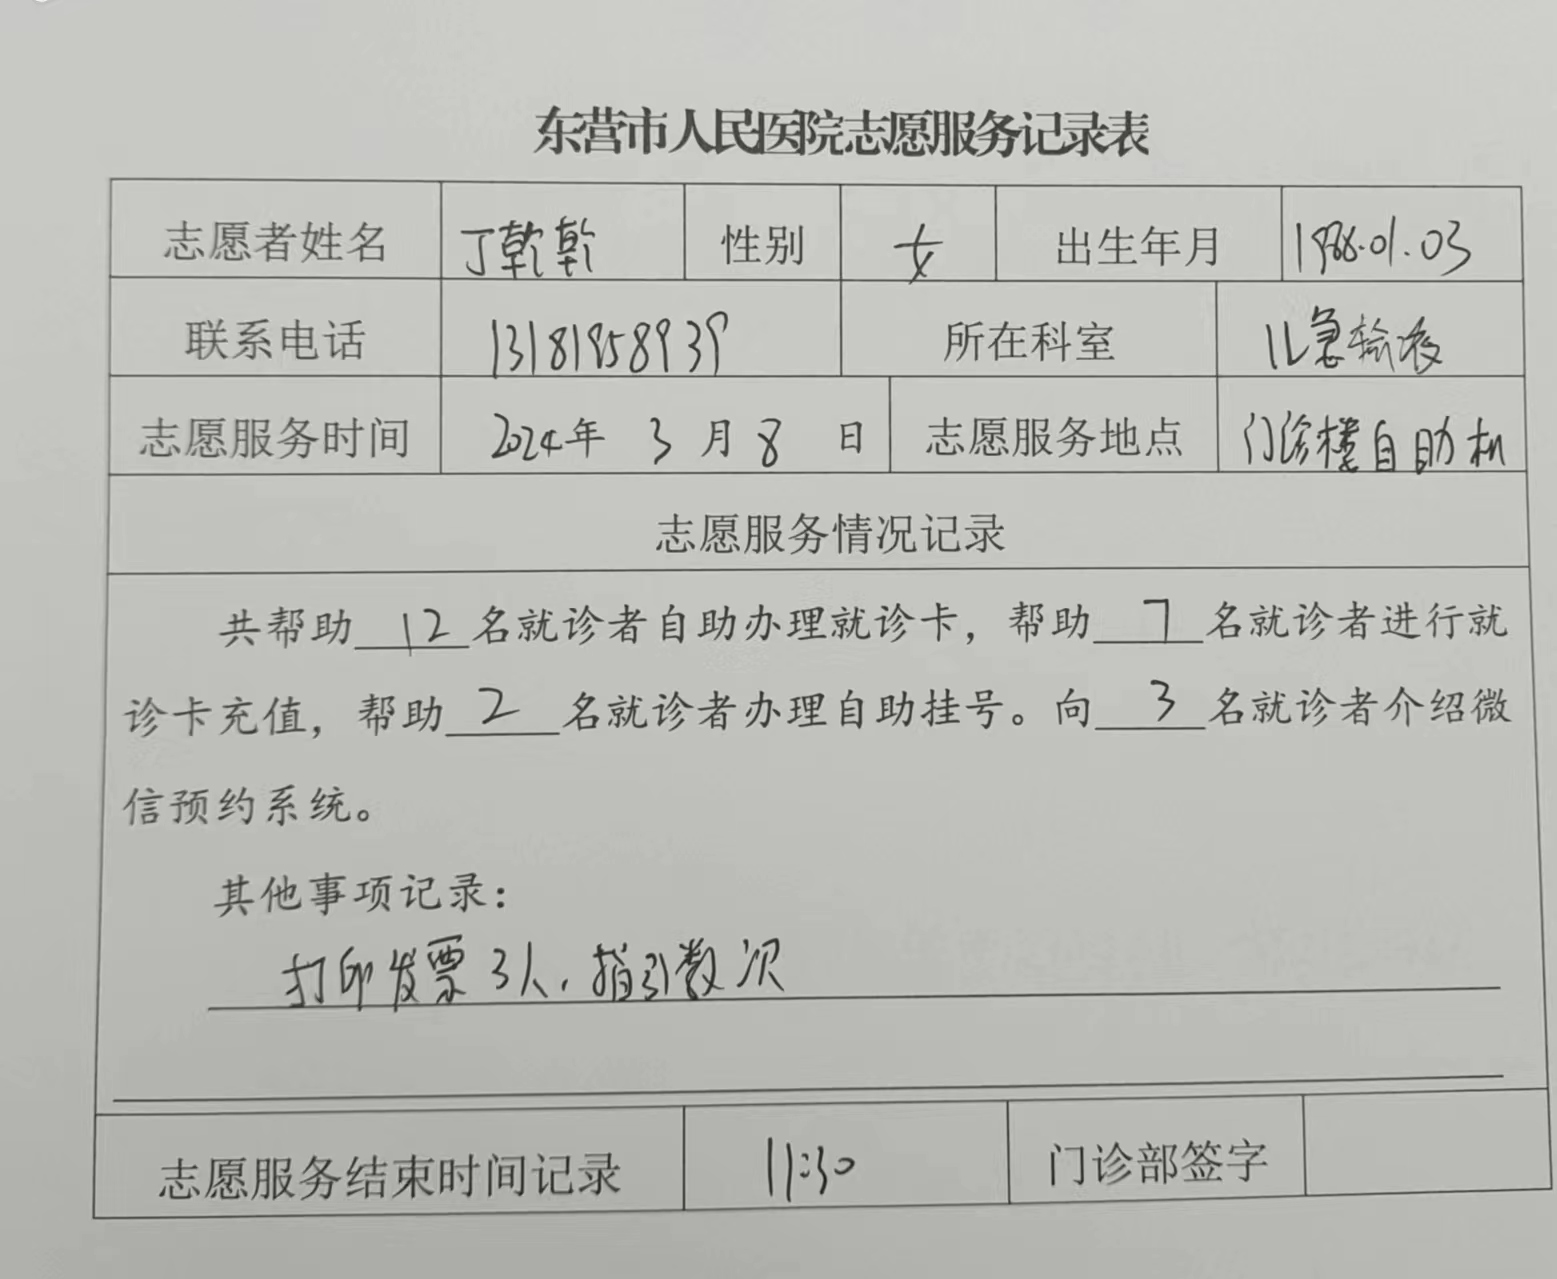 东营市人民医院志愿服务记录表
志愿者姓名 丁乾乾 性别 女 出生年月 1988.01.03
联系电话 13181958939 所在科室 儿急输液
志愿服务时间 2024年 3 月 8 日 志愿服务地点 门诊楼自助机
志愿服务情况记录
共帮助 12 名就诊者自助办理就诊卡，帮助 7 名就诊者进行就
诊卡充值，帮助 2 名就诊者办理自助挂号。向 3 名就诊者介绍微
信预约系统。
其他事项记录：
打印发票3人，指引数次
志愿服务结束时间记录 11:30 门诊部签字